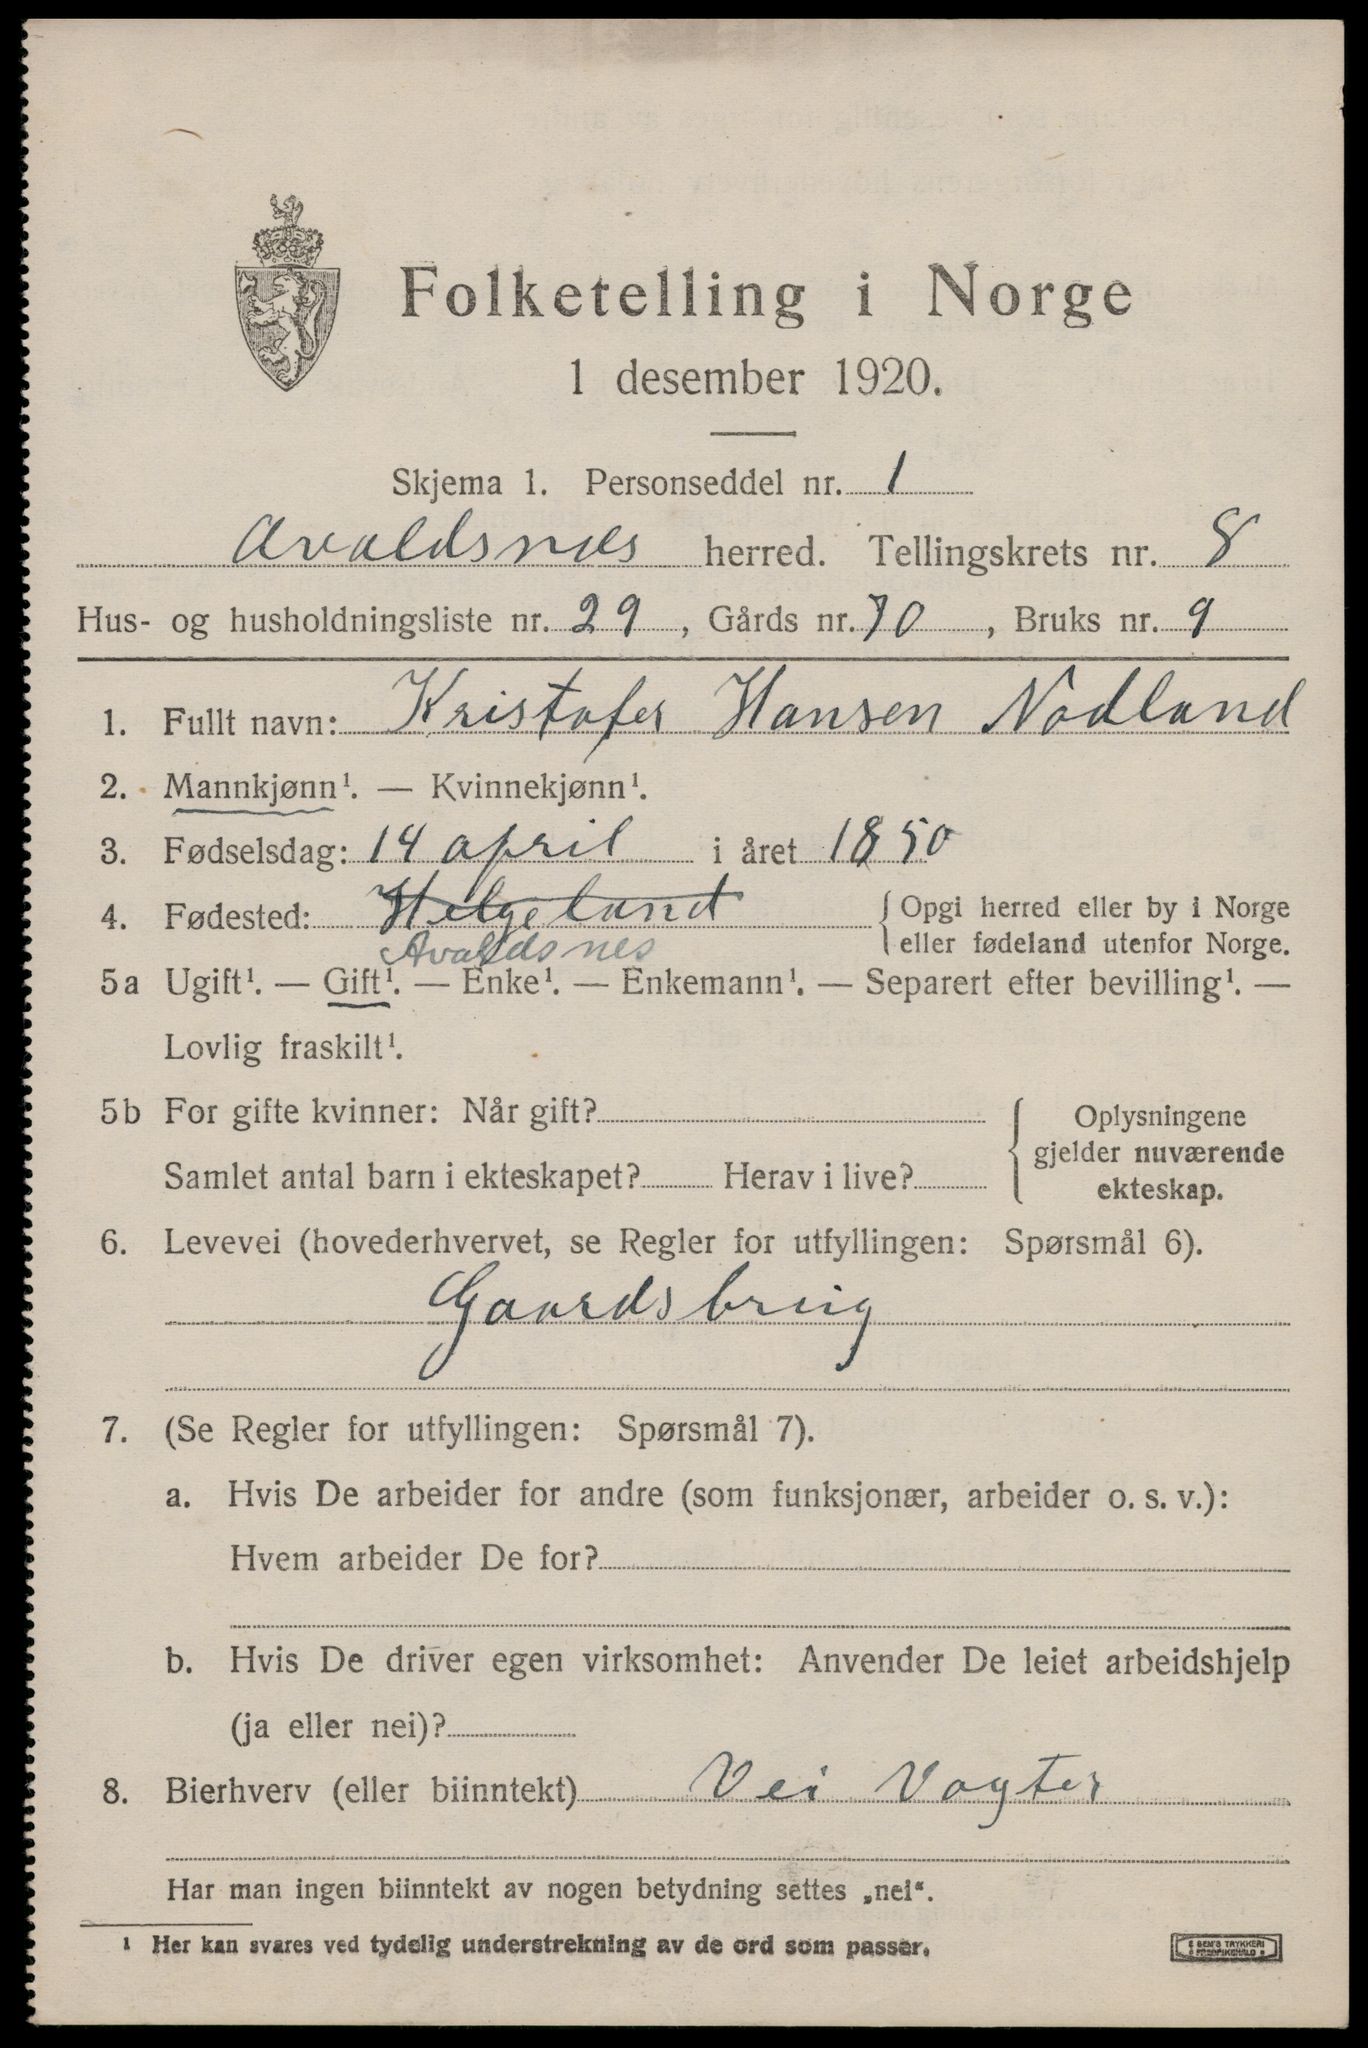 Folketelling i Norge
1 desember 1920.
Skjema 1. Personseddel nr. 1
Avaldsnes herred. Tellingskrets nr. 8
Hus- og husholdningsliste nr. 29, Gårds nr. 70, Bruks nr. 9
1. Fullt navn: Kristofer Hansen Nodland
2. Mannkjønn¹. — Kvinnekjønn¹.
3. Fødselsdag: 14 april i året 1850
4. Fødested: Helgeland { Opgi herred eller by i Norge
Avaldsnes eller fødeland utenfor Norge.
5a Ugift¹. — Gift¹. — Enke¹. — Enkemann¹. — Separert efter bevilling¹. —
Lovlig fraskilt¹.
5b For gifte kvinner: Når gift? { Oplysningene
gjelder nuværende
Samlet antal barn i ekteskapet? Herav i live? ekteskap.
6. Levevei (hovederhvervet, se Regler for utfyllingen: Spørsmål 6).
Gaardsbrug
7. (Se Regler for utfyllingen: Spørsmål 7).
a. Hvis De arbeider for andre (som funksjonær, arbeider o. s. v.):
Hvem arbeider De for?
b. Hvis De driver egen virksomhet: Anvender De leiet arbeidshjelp
(ja eller nei)?
8. Bierhverv (eller biinntekt) Vei Vogter
Har man ingen biinntekt av nogen betydning settes „nei“.
¹ Her kan svares ved tydelig understrekning av de ord som passer.
SEM'S TRYKKERI
FREDRIKSHALD